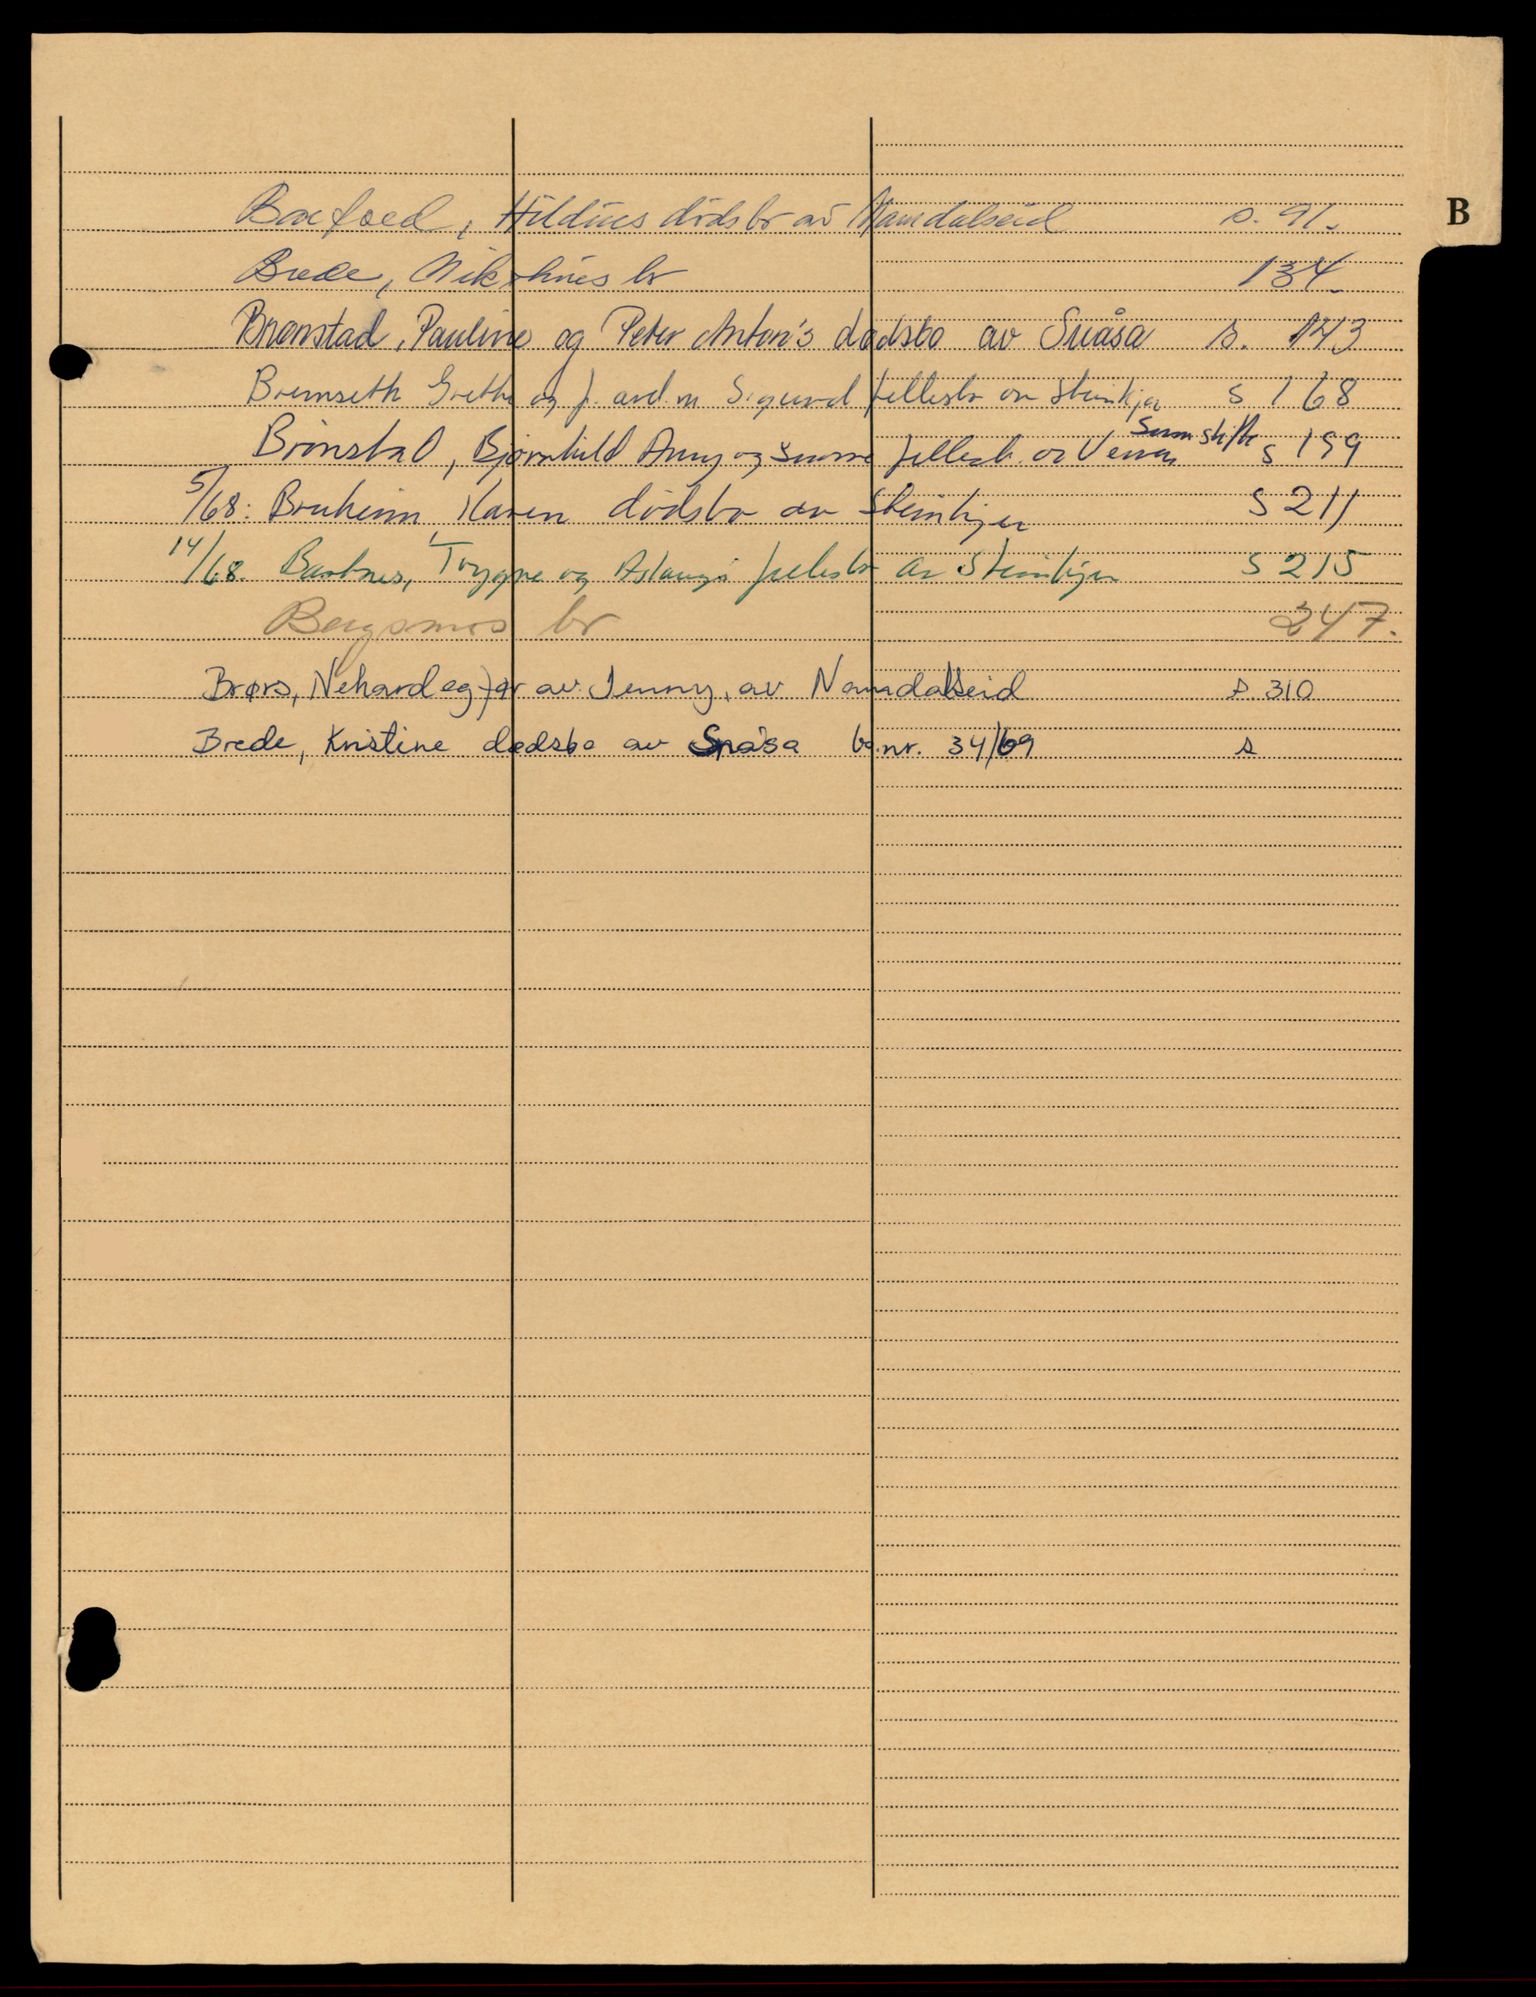 B
Hildus dödsbo av Namdalseid s. 91.
Brede, Nikolines bo 134.
Brønstad, Pauline og Peter Anton's dødsbo av Snåsa s. 143
Bremseth Grethe og f. avd. m Sigurd fellesbo av Steinkjer s 168
Brönstad, Bjørnhild Anny og Snorre fellesb. av Verran Sum skifte s 199
5/68: Bruheim, Karen dödsbo av Steinkjer s 211
14/68. Trygve og Aslaug fellesbo av Steinkjer s 215
Bergsmos bo 247.
Brørs, Nehard eg av Jenny, av Namdalseid s 310
Brede, Kristine dødsbo av Snåsa bo.nr. 34/69 s